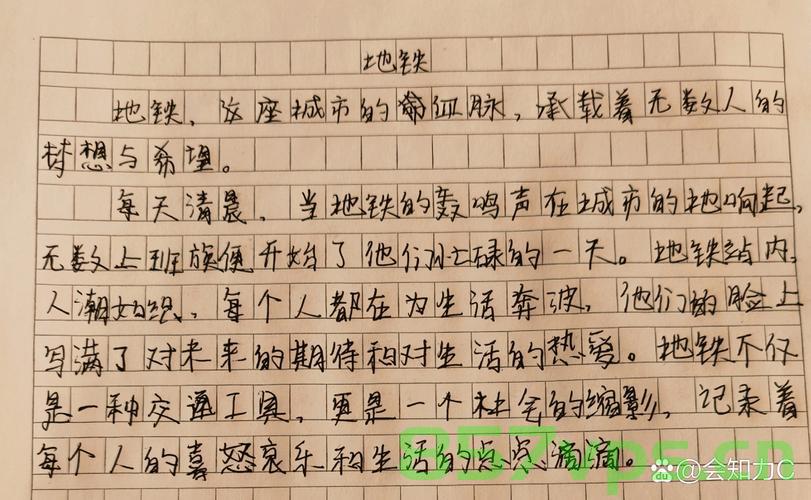 地铁
地铁，这座城市的命血脉，承载着无数人的
梦想与希望。
每天清晨，当地铁的轰鸣声在城市的地响起，
无数上班族便开始了他们忙碌的一天。地铁站内，
人潮如织，每个人都在为生活奔波，他们的脸上
写满了对未来的期待和对生活的热爱。地铁不仅
是一种交通工具，更是一个社会的缩影，记录着
每个人的喜怒哀乐和生活的点点滴滴。
857vps.cn
@会知力C